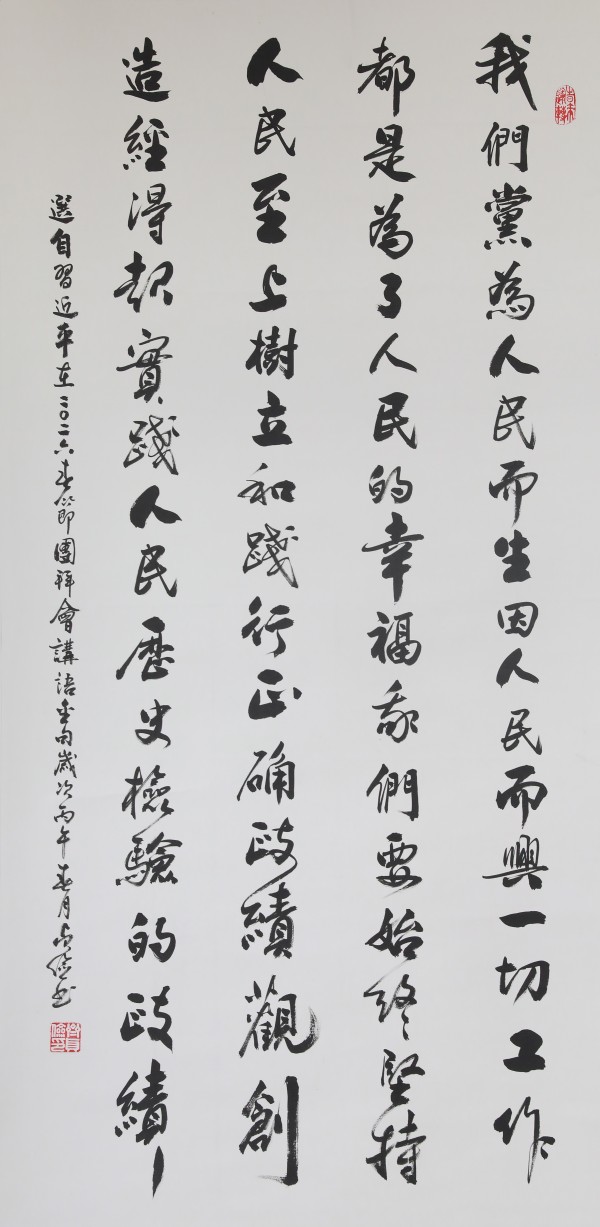 我們黨為人民而生因人民而興一切工作
都是為了人民的幸福我們要始終堅持
人民至上樹立和踐行正确政績觀創
造經得起實踐人民歷史檢驗的政績
選自習近平在二〇二六春節團拜會講話金句歲次丙午春月